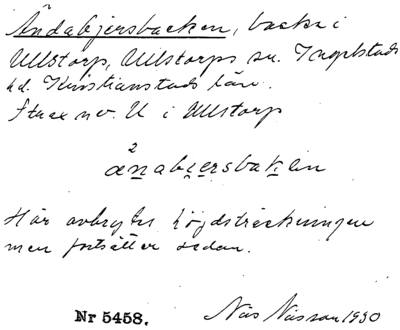 Åndabjersbacken, backe i
Ullstorp, Ullstorps sn. Ingelstads
hd. Kristianstads län.
Strax nv. U i Ullstorp
2
Här avbrytes höjdsträckningen
men fortsätter sedan.
Nr 5458.
Nils Nilsson 1930